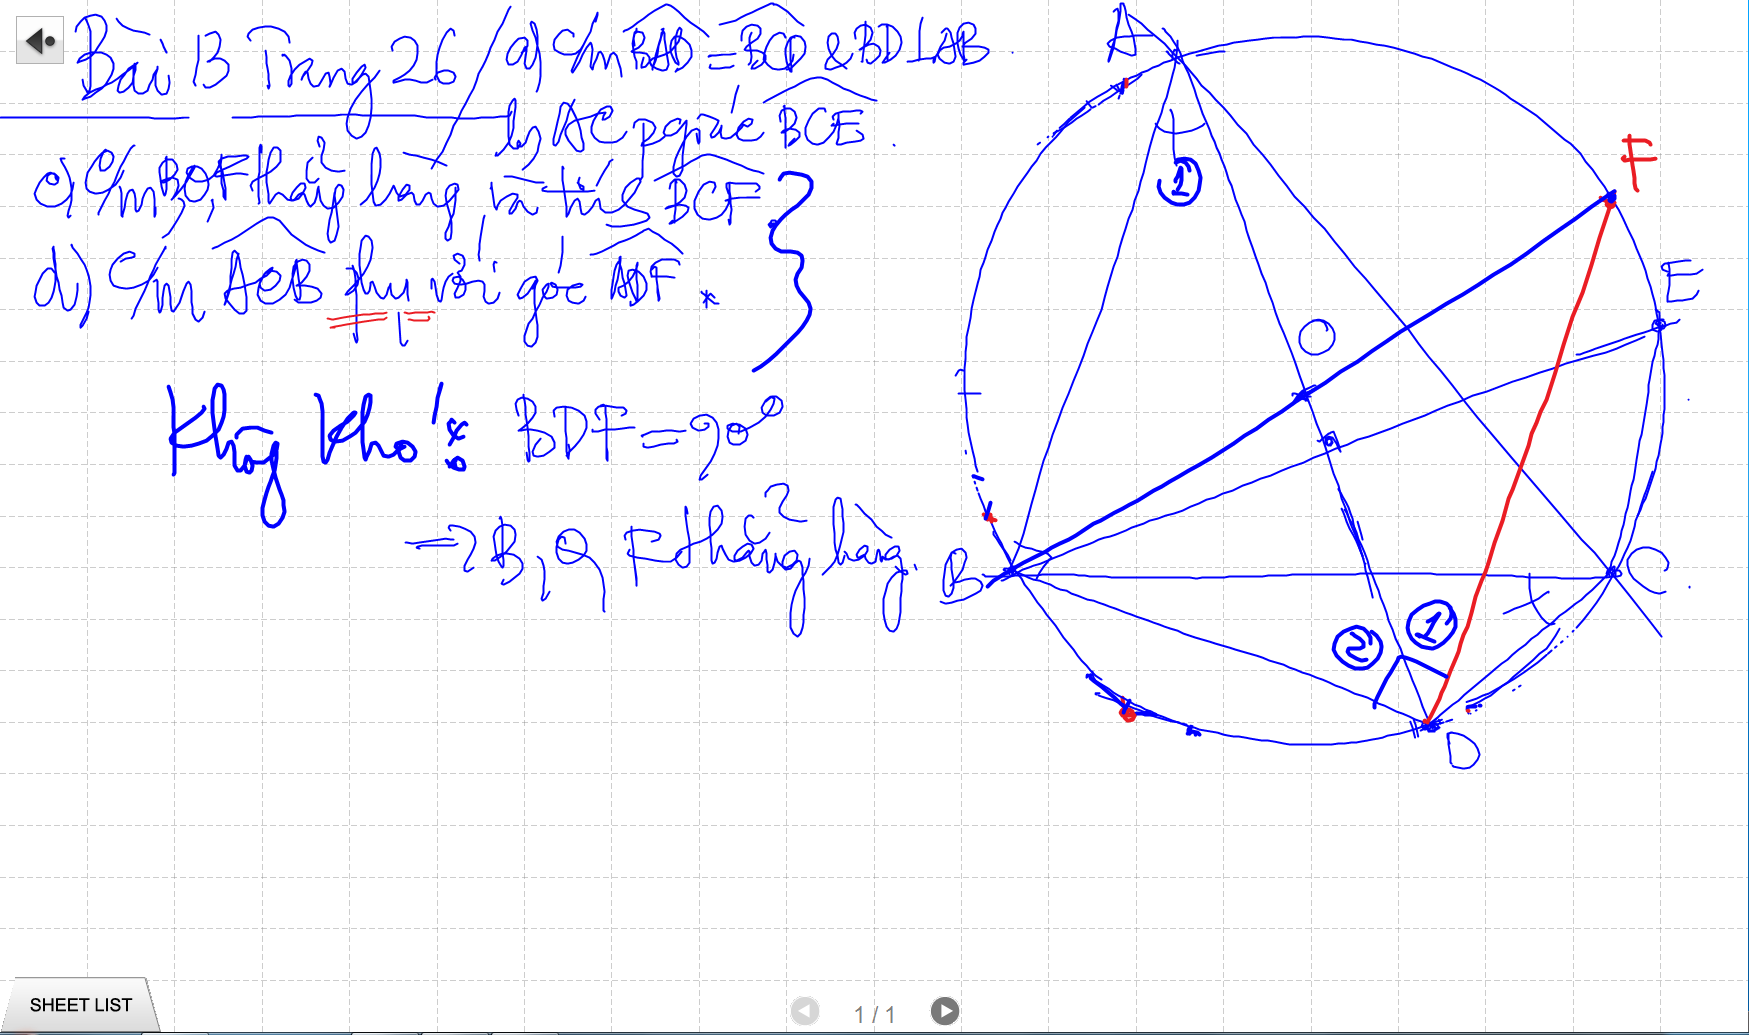 Bài 13 Trang 26 / a) C/m BAD = BCD & BD⊥AB.
b, AC pgiác BCE.
c) C/m B,O,F thẳng hàng và tính BCF
d) C/m ACB phụ với góc ADF.
Không khó!
BDF = 90°
=> B, O, F thẳng hàng.
A
1
F
E
O
B
C
2
1
D
SHEET LIST
1 / 1